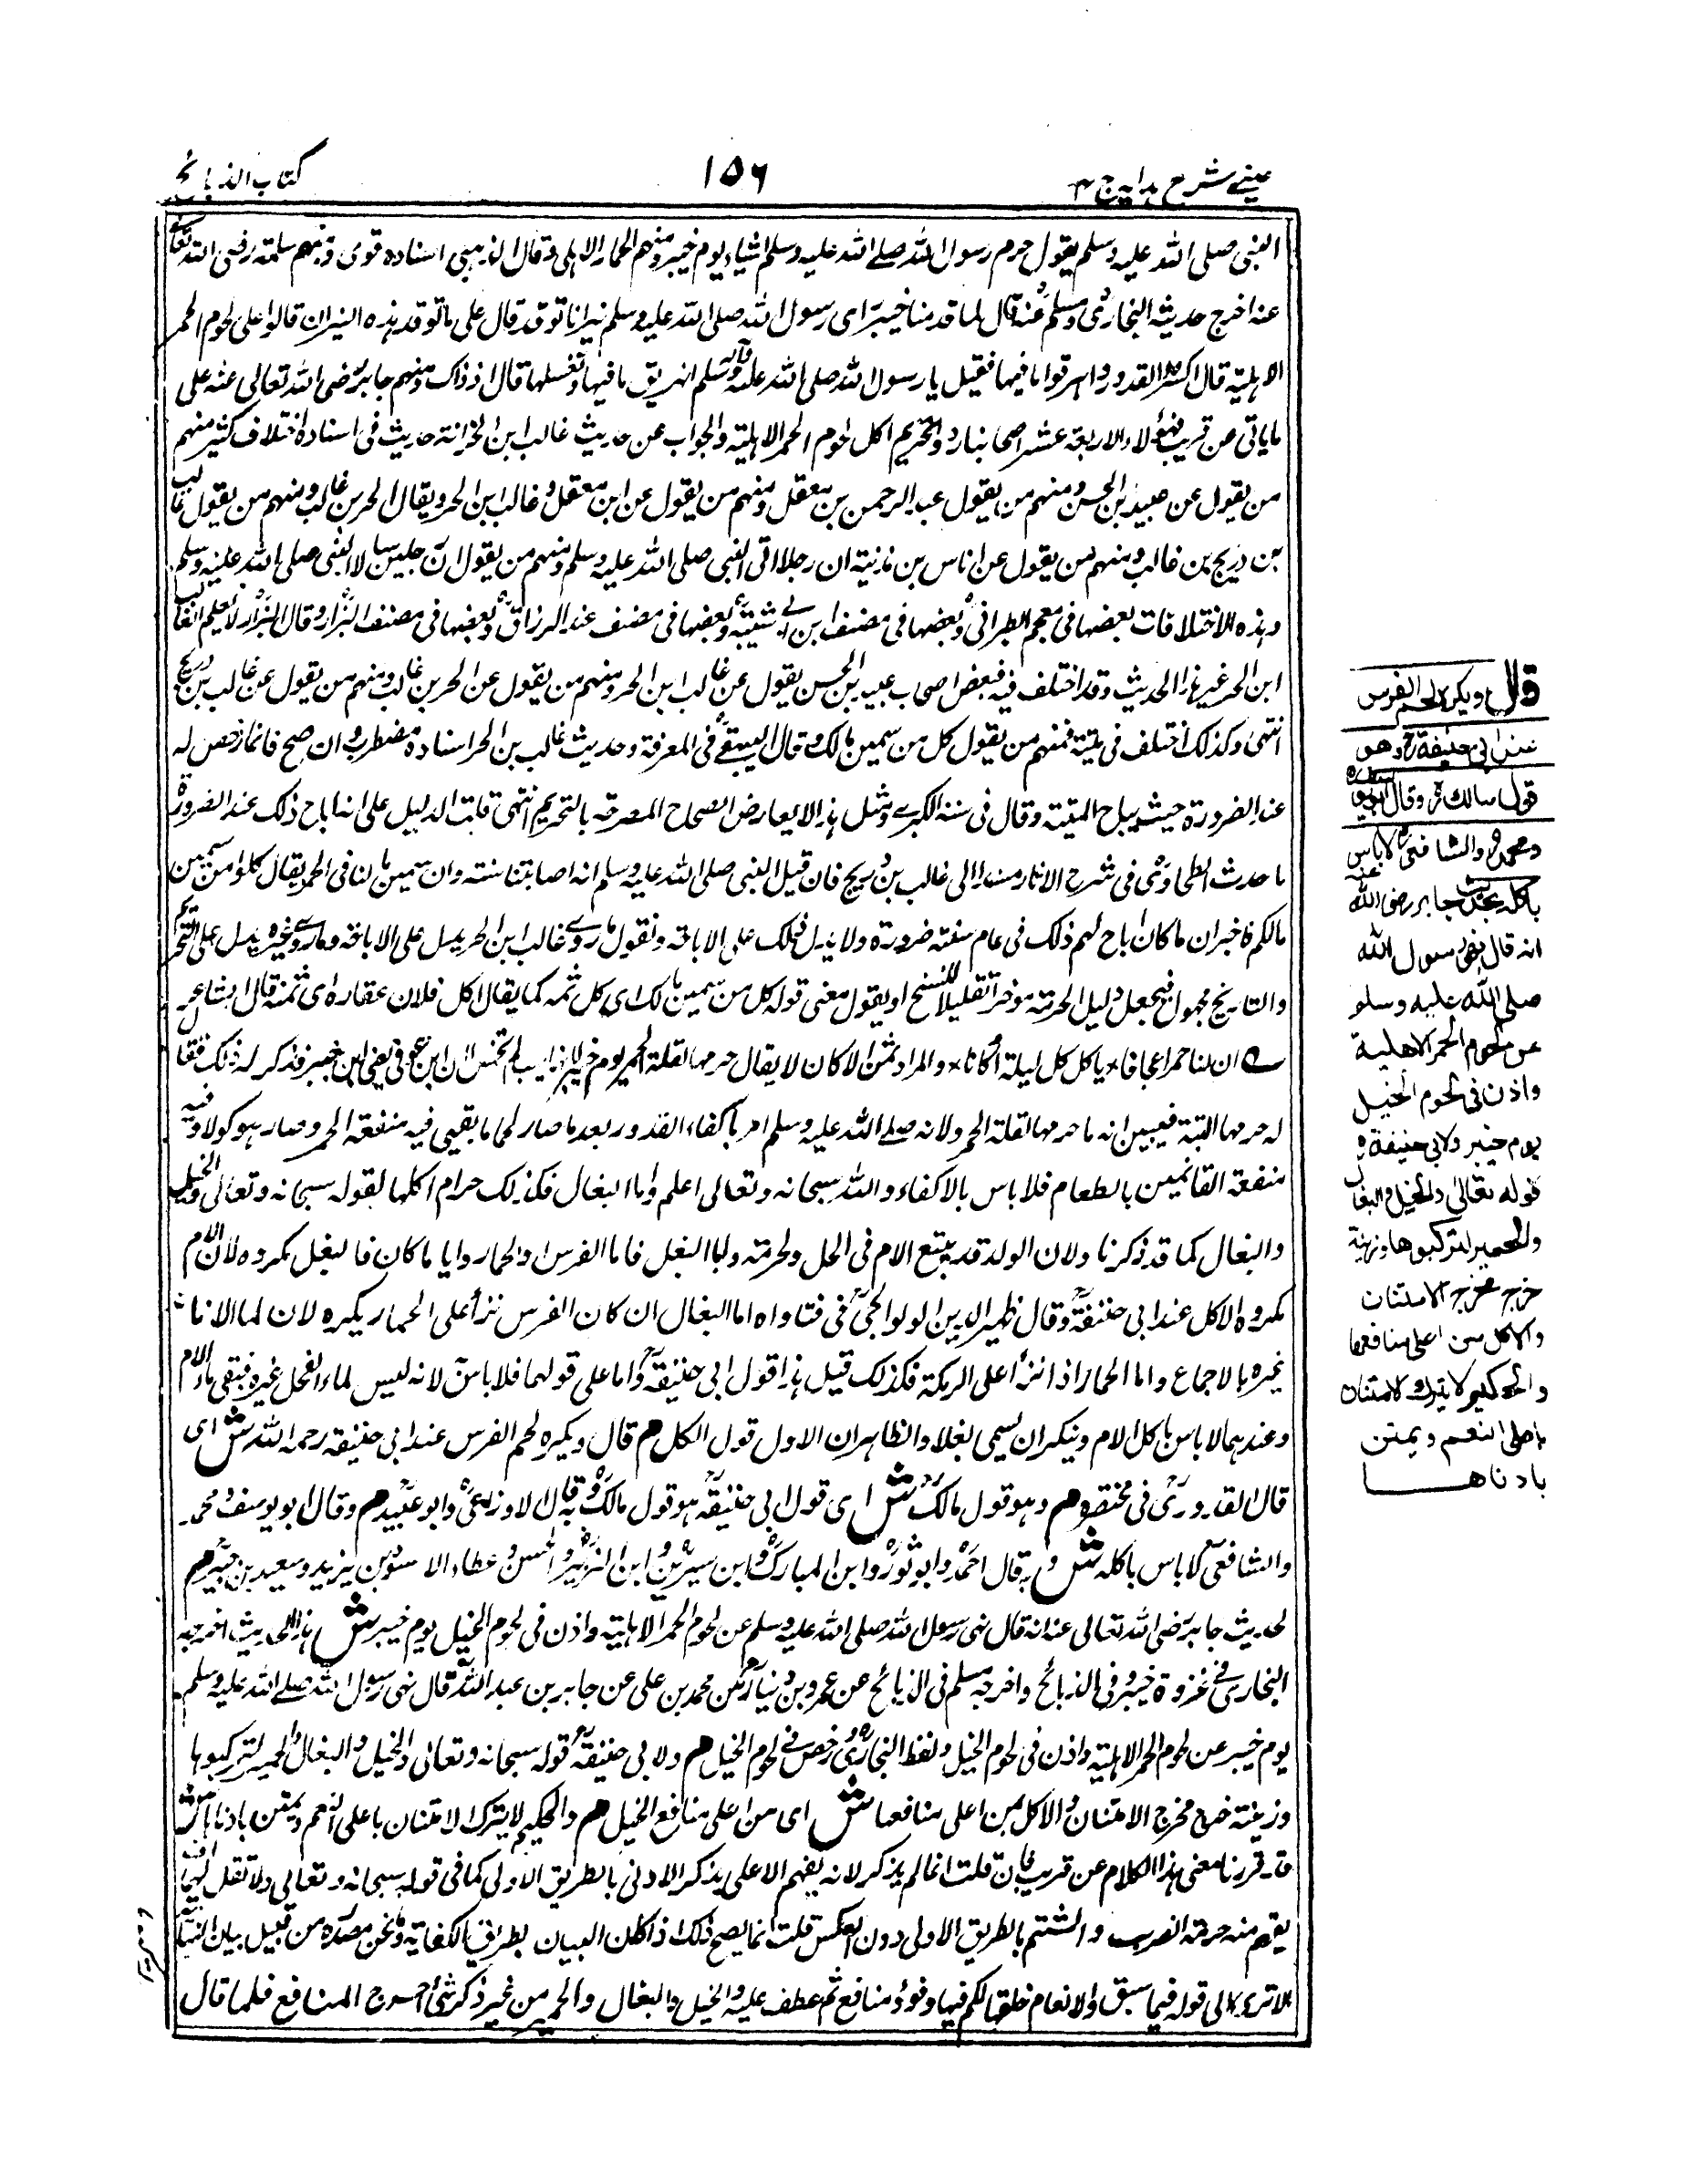 عيني شرح هدايه ج ٣
١٥٦
كتاب الذبائح
النبي صلى الله عليه وسلم يقول حرم رسول الله صلى الله عليه وسلم اشياء يوم خيبر منهم الحمار الاهلي وقال الذهبي اسناده قوى ومنهم سلمة رضى الله تعالى
عنه اخرج حديثه البخاري ومسلم عنه قال لما قدمنا خيبر راى رسول الله صلى الله عليه وسلم نيرانا توقد قال على ما توقد هذه النيران قالوا على لحوم الحمر
الاهلية قال اكسروا القدور واهرقوا ما فيها فقيل يا رسول الله صلى الله عليه وآله وسلم انهريق ما فيها ونغسلها قال اذ ذاك ومنهم جابر رضى الله تعالى عنه على
ما ياتى عن قريب فهؤلاء الاربعة عشر اصحابنا رووا تحريم اكل لحوم الحمر الاهلية والجواب عن حديث غالب ابن الحر انه حديث فى اسناده اختلاف كثير منهم
من يقول عن عبيد بن الحسن ومنهم من يقول عبد الرحمن بن معقل ومنهم من يقول عن ابن معقل وغالب ابن الحر ويقال الحر بن غالب ومنهم من يقول غالب
بن ذريح بن غالب ومنهم من يقول عن اناس بن مزنية ان رجلا اتى النبي صلى الله عليه وسلم ومنهم من يقول ان رجلين سالا النبي صلى الله عليه وسلم
وهذه الاختلافات بعضها في معجم الطبراني وبعضها فى مصنف ابن ابي شيبة وبعضها فى مصنف عبد الرزاق وبعضها فى مصنف البزار وقال البزار لا نعلم لغالب
ابن الحر غير هذا الحديث وقد اختلف فيه فبعض اصحاب عبيد بن الحسن يقول عن غالب ابن الحر ومنهم من يقول عن الحر بن غالب ومنهم من يقول عن غالب بن ذريح
انتهى وكذلك اختلف فى متنه فمنهم من يقول كل من سمين مالك وقال البيهقي فى المعرفة وحديث غالب بن الحر اسناده مضطرب وان صح فانما رخص له
عند الضرورة حيث يباح الميتة وقال فى سننه الكبرى ومثل هذا لا يعارض الصحاح المصرحة بالتحريم انتهى قلت الدليل على انه اباح ذلك عند الضرورة
ما حدث الطحاوي فى شرح الاثار مسندا الى غالب بن ذريح فان قيل النبي صلى الله عليه وسلم انه اصابتنا سنة وان سمين مالنا فى الحمر يقال كلوا من سمين
مالكم فاخبر ان ما كان اباح لهم ذلك فى عام سنة ضرورة ولا يدل ذلك على الاباحة ونقول ما روى غالب ابن الحر يدل على الاباحة وما روى غيره يدل على التحريم
والتاريخ مجهول فيجعل دليل الحرمة مؤخرا تقليلا للنسخ او يقول معنى قوله كل من سمين مالك اى كل ثمنه كما يقال اكل فلان عقاره اى ثمنه قال الشاعر
ان لنا حمرا عجافا ياكل كل ليلة اكافا والمراد ثمن الاكاف لا يقال حرمها لقلة الحمير يوم خيبر
له حرمها البتة فيبين انه ما حرمها لقلة الحمر ولانه صلى الله عليه وسلم امر باكفاء القدور بعد ما صار لحما ما بقى فيه منفعة الحمر وصار هو كولا وفيه
منفعة القائمين بالطعام فلا باس بالاكفاء والله سبحانه وتعالى اعلم واما البغال فكذلك حرام اكلها لقوله سبحانه وتعالى والخيل
والبغال كما قد ذكرنا ولان الولد قد يتبع الام فى الحل والحرمة ولبا البغل فاما الفرس او الحمار وايا ما كان فالبغل مكروه لان الام
مكروه الاكل عند ابى حنيفة وقال ظهير الدين الولوالجي فى فتاواه اما البغال ان كان الفرس نزا على الحمار يكره لان لما الاناث
غيره بالاجماع واما الحمار اذا نزا على الرمكة فكذلك قيل هذا قول ابى حنيفة واما على قولهما فلا باس لانه ليس لماء الفحل غيره فبقى ماء الام
وعندهما لا باس باكل الام وينكر ان يسمى بغلا والظاهر ان الاول قول الكل م قال ويكره لحم الفرس عند ابى حنيفة رحمه الله ش اى
قال القدوري فى مختصره م وهو قول مالك ش اى قول ابى حنيفة هو قول مالك وبه قال الاوزاعى وابو عبيد م وقال ابو يوسف ومحمد
والشافعى لا باس باكله ش وبه قال احمد وابو ثور وابن المبارك وابن سيرين وابن الزبير والحسن وعطاء والاسود بن يزيد وسعيد بن جبير م
لحديث جابر رضى الله تعالى عنه انه قال نهى رسول الله صلى الله عليه وسلم عن لحوم الحمر الاهلية واذن فى لحوم الخيل يوم خيبر ش هذا الحديث اخرجه
البخاري في غزوة خيبر وفى الذبائح واخرجه مسلم فى الذبائح عن عمرو بن دينار عن محمد بن على عن جابر بن عبد الله قال نهى رسول الله صلى الله عليه وسلم
يوم خيبر عن لحوم الحمر الاهلية واذن فى لحوم الخيل ولفظ البخاري رخص في لحوم الخيل م ولابى حنيفة قوله سبحانه وتعالى والخيل والبغال والحمير لتركبوها
وزينة خرج مخرج الامتنان والاكل من اعلى منافعها ش اى من اعلى منافع الخيل م والحكيم لا يترك الامتنان باعلى النعم ويمتن بادناها ش
قد قررنا معنى هذا الكلام عن قريب فان قلت انما لم يذكر لانه يفهم الاعلى بذكر الادنى بالطريق الاولى كما فى قوله سبحانه وتعالى ولا تقل لهما اف
يفهم منه حرمة الضرب والشتم بالطريق الاولى دون العكس قلت انما يصح ذلك اذا كان البيان بطريق الكفاية وما نحن بصدده من قبيل بيان النهاية
الا ترى الى قوله فيما سبق والانعام خلقها لكم فيها دفؤ ومنافع ثم عطف عليه والخيل والبغال والحمير من غير ذكر شئ اخر ج المنافع فلما قال
قال ويكره لحم الفرس
عند ابي حنيفة رح وهو
قول مالك رح وقال ابو يوسف
ومحمد رح والشافعى رح لا باس
باكله بحديث جابر رضى الله عنه
انه قال نهى رسول الله
صلى الله عليه وسلم
عن لحوم الحمر الاهلية
واذن فى لحوم الخيل
يوم خيبر ولابى حنيفة رح
قوله تعالى والخيل والبغال
والحمير لتركبوها وزينة
خرج مخرج الامتنان
والاكل من اعلى منافعها
والحكيم لا يترك الامتنان
باعلى النعم ويمتن
بادناها